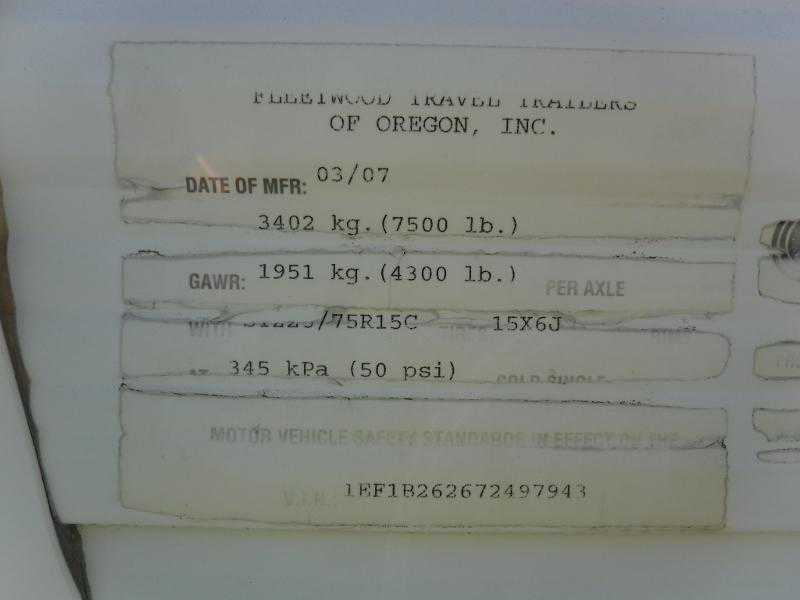 FLEETWOOD TRAVEL TRAILERS
OF OREGON, INC.
DATE OF MFR: 03/07
3402 kg.(7500 lb.)
GAWR: 1951 kg.(4300 lb.) PER AXLE
WITH ST225/75R15C 15X6J RIMS
AT 345 kPa (50 psi) COLD SINGLE
MOTOR VEHICLE SAFETY STANDARDS IN EFFECT ON THE
V.I.N. 1EF1B262672497943